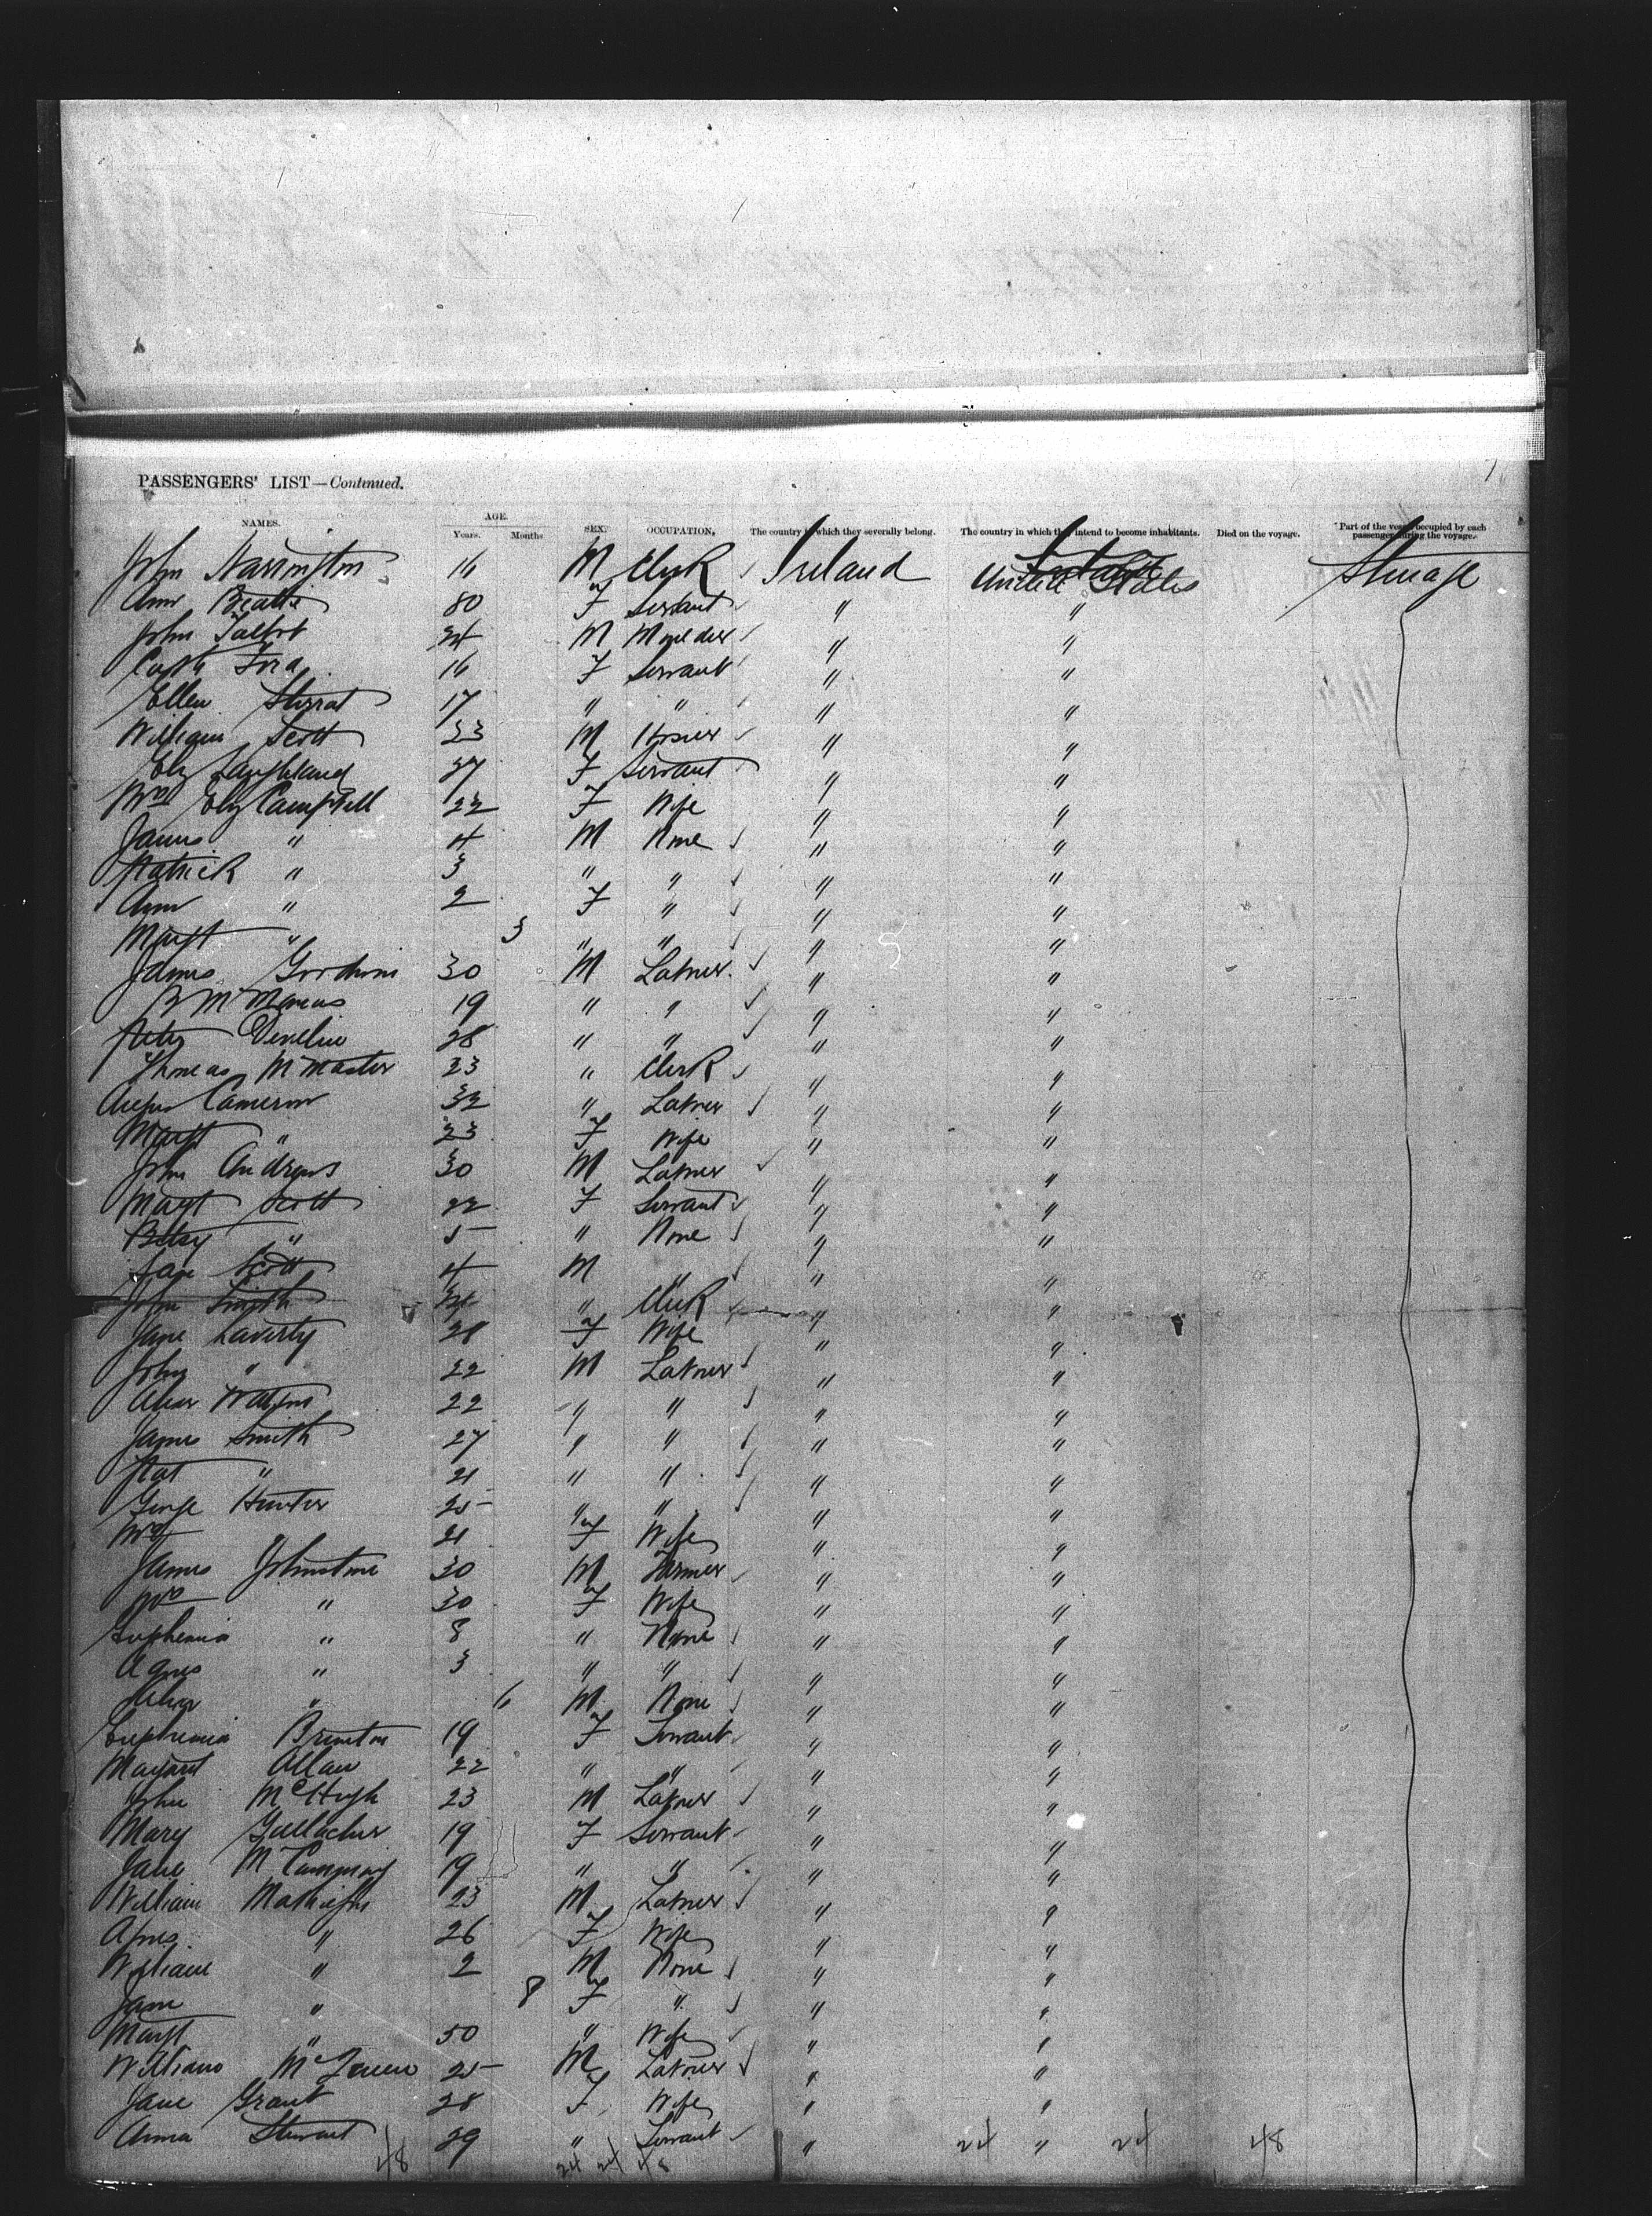 PASSENGERS' LIST—Continued.
NAMES. AGE. Years. Months SEX. OCCUPATION. The country in which they severally belong. The country in which they intend to become inhabitants. Died on the voyage. Part of the vessel occupied by each passenger during the voyage.
John Harrington 16 M Clerk Ireland United States Sterage
Ann Beattie 80 F Servant " "
John Talbot 24 M Moulder " "
16 F Servant " "
Ellen Stirrat 17 " " " "
William Scott 33 M Hosier " "
Eliz Laughland 27 F Servant " "
Mrs Eliz Campbell 22 F Wife " "
James " 4 M None " "
Patrick " 3 " " " "
Ann " 2 F " " "
Margt " 3 " " " "
James Goodwin 30 M Labourer " "
B McManus 19 " " " "
Peter Develin 28 " " " "
Thomas McMaster 23 " Clerk " "
Angus Cameron 32 " Labourer " "
Margt " 23 F Wife " "
John Andrews 30 M Labourer " "
Margt Scott 22 F Servant " "
Betsy " 5 " None " "
Scott 4 M " " "
John Smith " Clerk " "
Jane Laverty 28 F Wife " "
John " 22 M Labourer " "
Alexr Watson 22 " " " "
James Smith 27 " " " "
Pat " 21 " " " "
George Hunter 25 " " " "
Mrs 21 F Wife " "
James Johnstone 30 M Farmer " "
Mrs " 30 F Wife " "
Euphemia " 8 " None " "
Agnes " 3 " " " "
" 6 M None " "
Euphemia Brunton 19 F Servant " "
Margaret Allan 22 " " " "
John McHugh 23 M Labourer " "
Mary Gallacher 19 F Servant " "
Jane McCumming 19 " " " "
William Mathieson 23 M Labourer " "
Agnes " 26 F Wife " "
William " 2 M None " "
Jane " 8 F " " "
Margt " 50 " Wife " "
William McQueen 25 M Labourer " "
Jane Grant 28 F Wife " "
Anna Stewart 29 " Servant " "
48 24 24 48 24 24 48